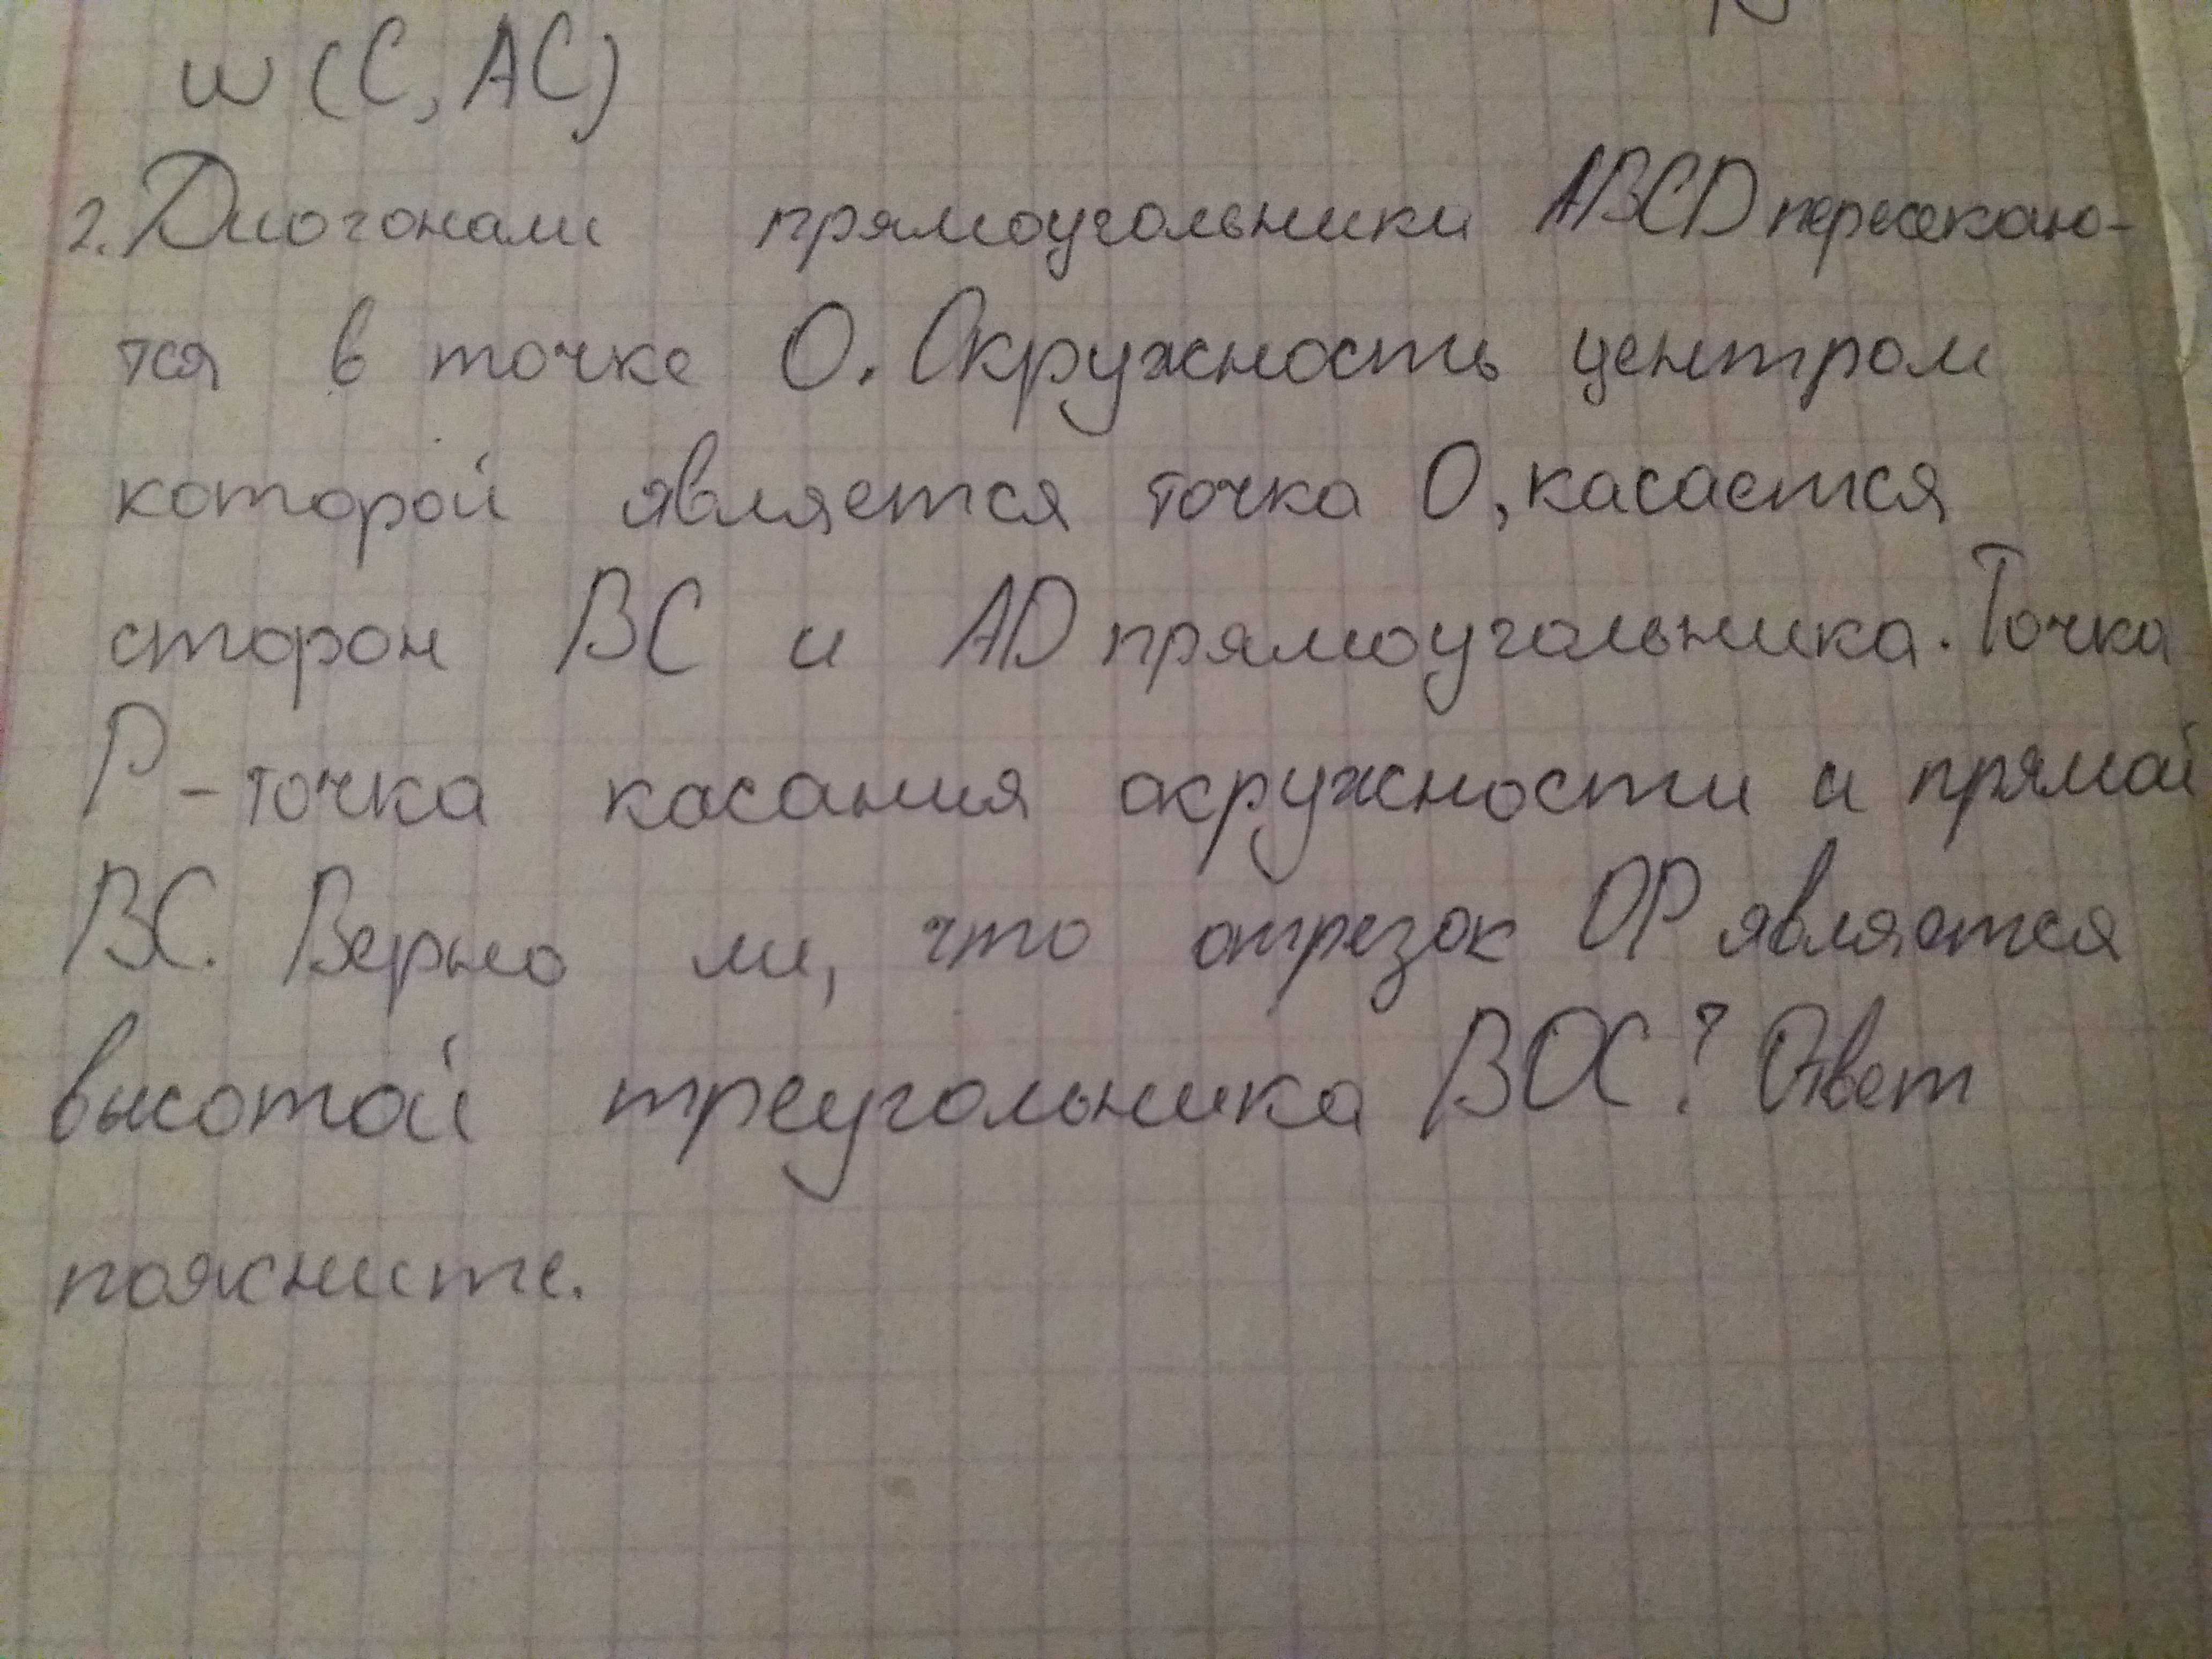 w (C, AC)
2. Диогонали прямоугольника ABCD пересекаю-
тся в точке О. Окружность центром
которой является точка О, касается
сторон BC и AD прямоугольника. Точка
P - точка касания окружности и прямой
BC. Верно ли, что отрезок OP является
высотой треугольника BOC? Ответ
поясните.